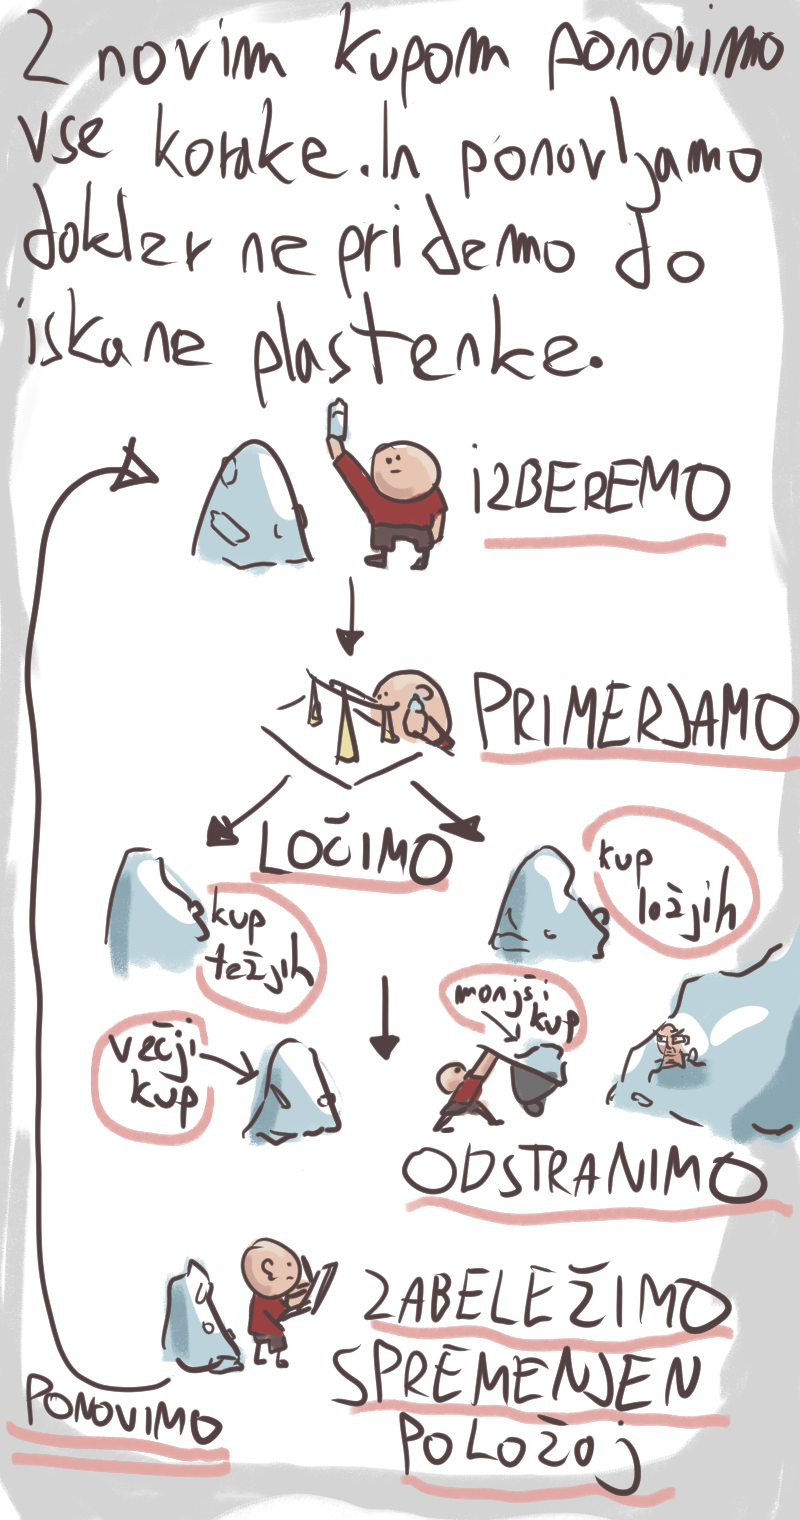 Z novim kupom ponovimo
vse korake. In ponovljamo
dokler ne pridemo do
iskane plastenke.
IZBEREMO
PRIMERJAMO
LOČIMO
kup
ložjih
kup
težjih
manjši
kup
večji
kup
ODSTRANIMO
ZABELEŽIMO
SPREMENJEN
POLOŽOJ
PONOVIMO